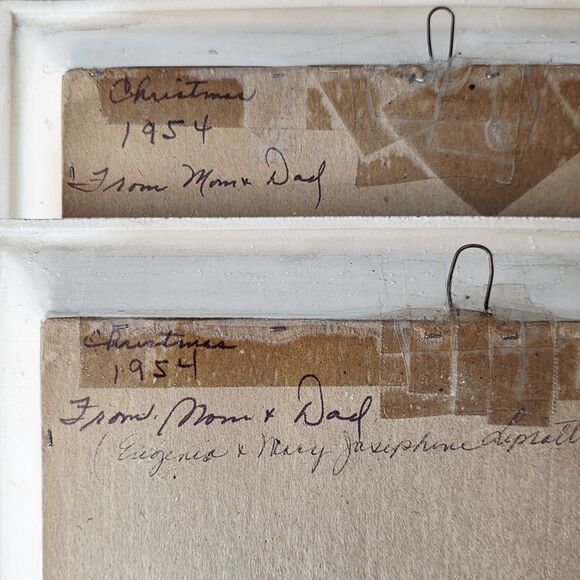 Christmas
1954
From Mom & Dad
Christmas
1954
From Mom & Dad
(Eugenia & Mary Josephine